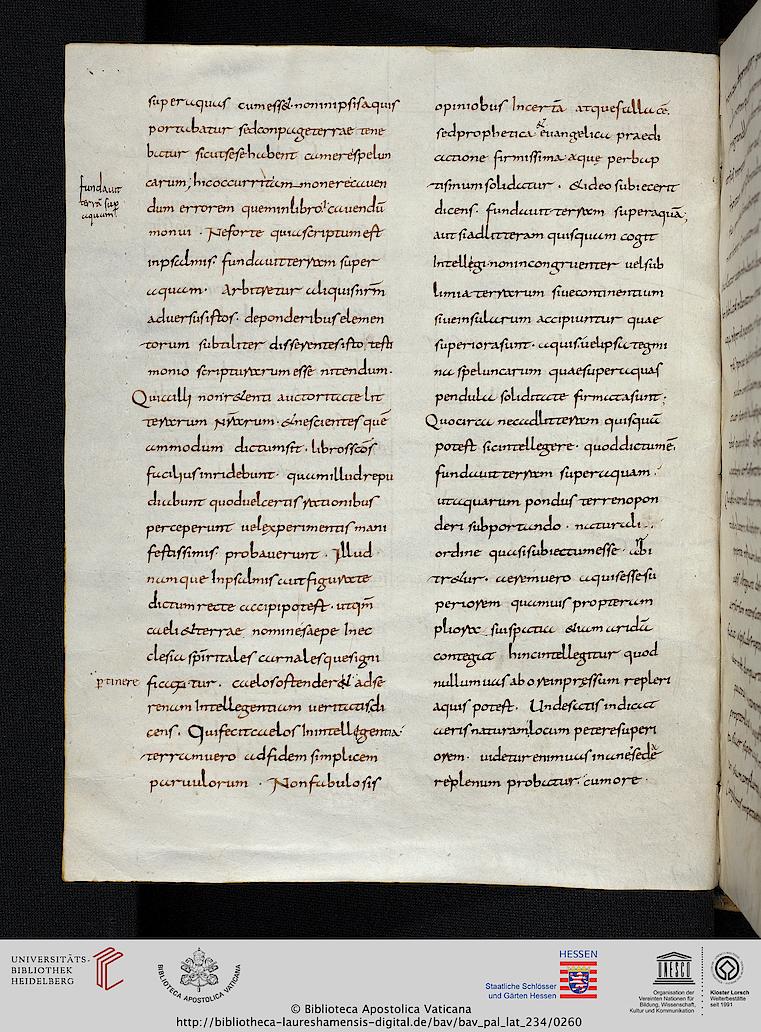 superaquas cumess& nominipsisaquis
portabatur sedconpageterrae tene
batur sicutsesehabent camerespelun
carum; hicoccurritam monerecauen
dum errorem queminlibro cauendū
monui . Neforte quiascriptumest
inpsalmis fundauitterram super
aquam . Arbitretur aliquisnrm̄
adversusistos . deponderibuselemen
torum subtiliter disserentesisto testi
monio scripturarum esse nitendum .
Quiailli nonr&enti auctoritatelit
terarum nr̄arum . &nescientes quē
ammodum dictumsit . librosscōs
faciliusinridebunt . quamillud repu
diabunt quoduelcertis rationibus
perceperunt uel experimentis mani
festissimis probauerunt . Illud
namque Inpsalmis aut figurate
dictum recte accipi potest . utqm̄
caeli &terrae nomine saepe Inec
clesia spiritales carnalesquesigni
fundauit
terrā sup
aquam
ptinere
ficatur . caelosostender& adse
renam Intellegentiam ueritatis di
cens . Qui fecit caelos In intell&gentia
terramuero adfidem simplicem
paruulorum . Nonfabulosis
opiniobus Incertā atquefallacē .
sedprophetica & euangelica praedi
catione firmissima aque perbap
tismumsolidatur . &ideo subiecerit
dicens . fundauit terram superaquā;
aut siadlitteram quisquam cogit
Intellegi . nonincongruenter uelsub
limia terrarum siuecontinentium
siueinsularum accipiuntur quae
superiorasunt . aquis uelipsa tegmi
na speluncarum quaesuperaquas
pendula soliditate firmatasunt;
Quocirca necadlitteram quisquā
potest sicintellegere . quoddictumē .
fundauitterram super aquam .
utaquarum pondus terrenopon
deri subportando . naturali
ordine quasisubiectumesse . ubi
tr&ur . aeremuero aquisessesu
periorem quamuis propteram
pliora suispatia &iam aridā
contegat hincintellegitur quod
nullumuas ab oreinpressum repleri
aquis potest . Undesatis indicat
aeris naturam locum peteresuperi
orem . uidetur enimuas inane sedē
replenum probatur . cumore .
UNIVERSITÄTS-
BIBLIOTHEK
HEIDELBERG
BIBLIOTHECA APOSTOLICA VATICANA
HESSEN
Staatliche Schlösser
und Gärten Hessen
UNESCO
Organisation der
Vereinten Nationen für
Bildung, Wissenschaft,
Kultur und Kommunikation
Kloster Lorsch
Welterbestätte
seit 1991
© Biblioteca Apostolica Vaticana
http://bibliotheca-laureshamensis-digital.de/bav/bav_pal_lat_234/0260